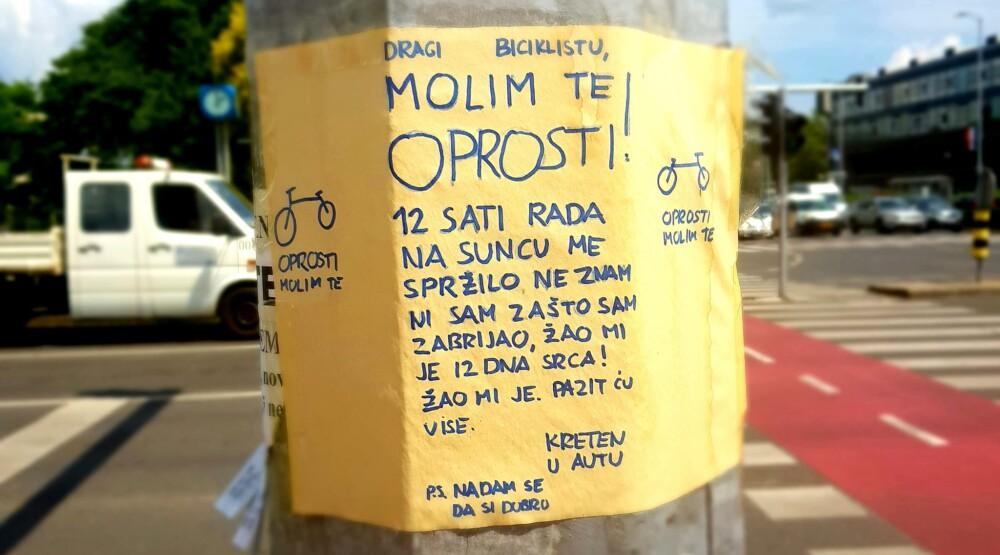 DRAGI BICIKLISTU,
MOLIM TE
OPROSTI!
12 SATI RADA
NA SUNCU ME
SPRŽILO NE ZNAM
NI SAM ZAŠTO SAM
ZABRIJAO, ŽAO MI
JE IZ DNA SRCA!
ŽAO MI JE. PAZIT ĆU
VIŠE.
KRETEN
U AUTU
P.S. NADAM SE
DA SI DOBRO
OPROSTI
MOLIM TE
OPROSTI
MOLIM TE